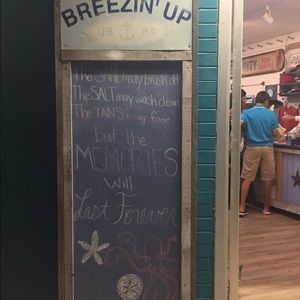 BREEZIN' UP
US 84
The SAND may brush off
The SALT may wash clean
The TANS may fade
but the
MEMORIES
will
Last Forever